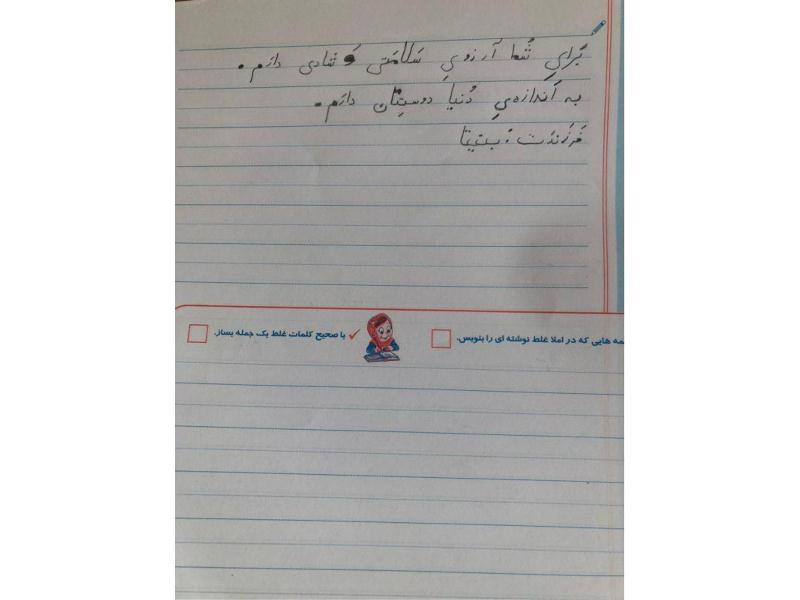 بَرایِ شُما آرزویِ سَلامَتی وَ شادی دارَم.
به اَندازه‌یِ دُنیا دوستِتان دارَم.
فَرزَندَت:
مه هایی که در املا غلط نوشته ای را بنویس.
با صحیح کلمات غلط یک جمله بساز.